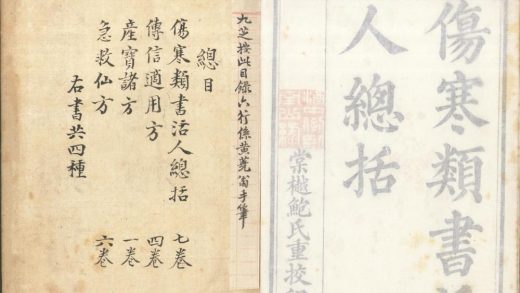 傷寒類書
人總括
棠樾鮑氏重挍
九芝按此目錄六行係黃蕘翁手筆
總目
傷寒類書活人總括 七卷
傳信適用方 四卷
產寶諸方 一卷
急救仙方 六卷
右書共四種